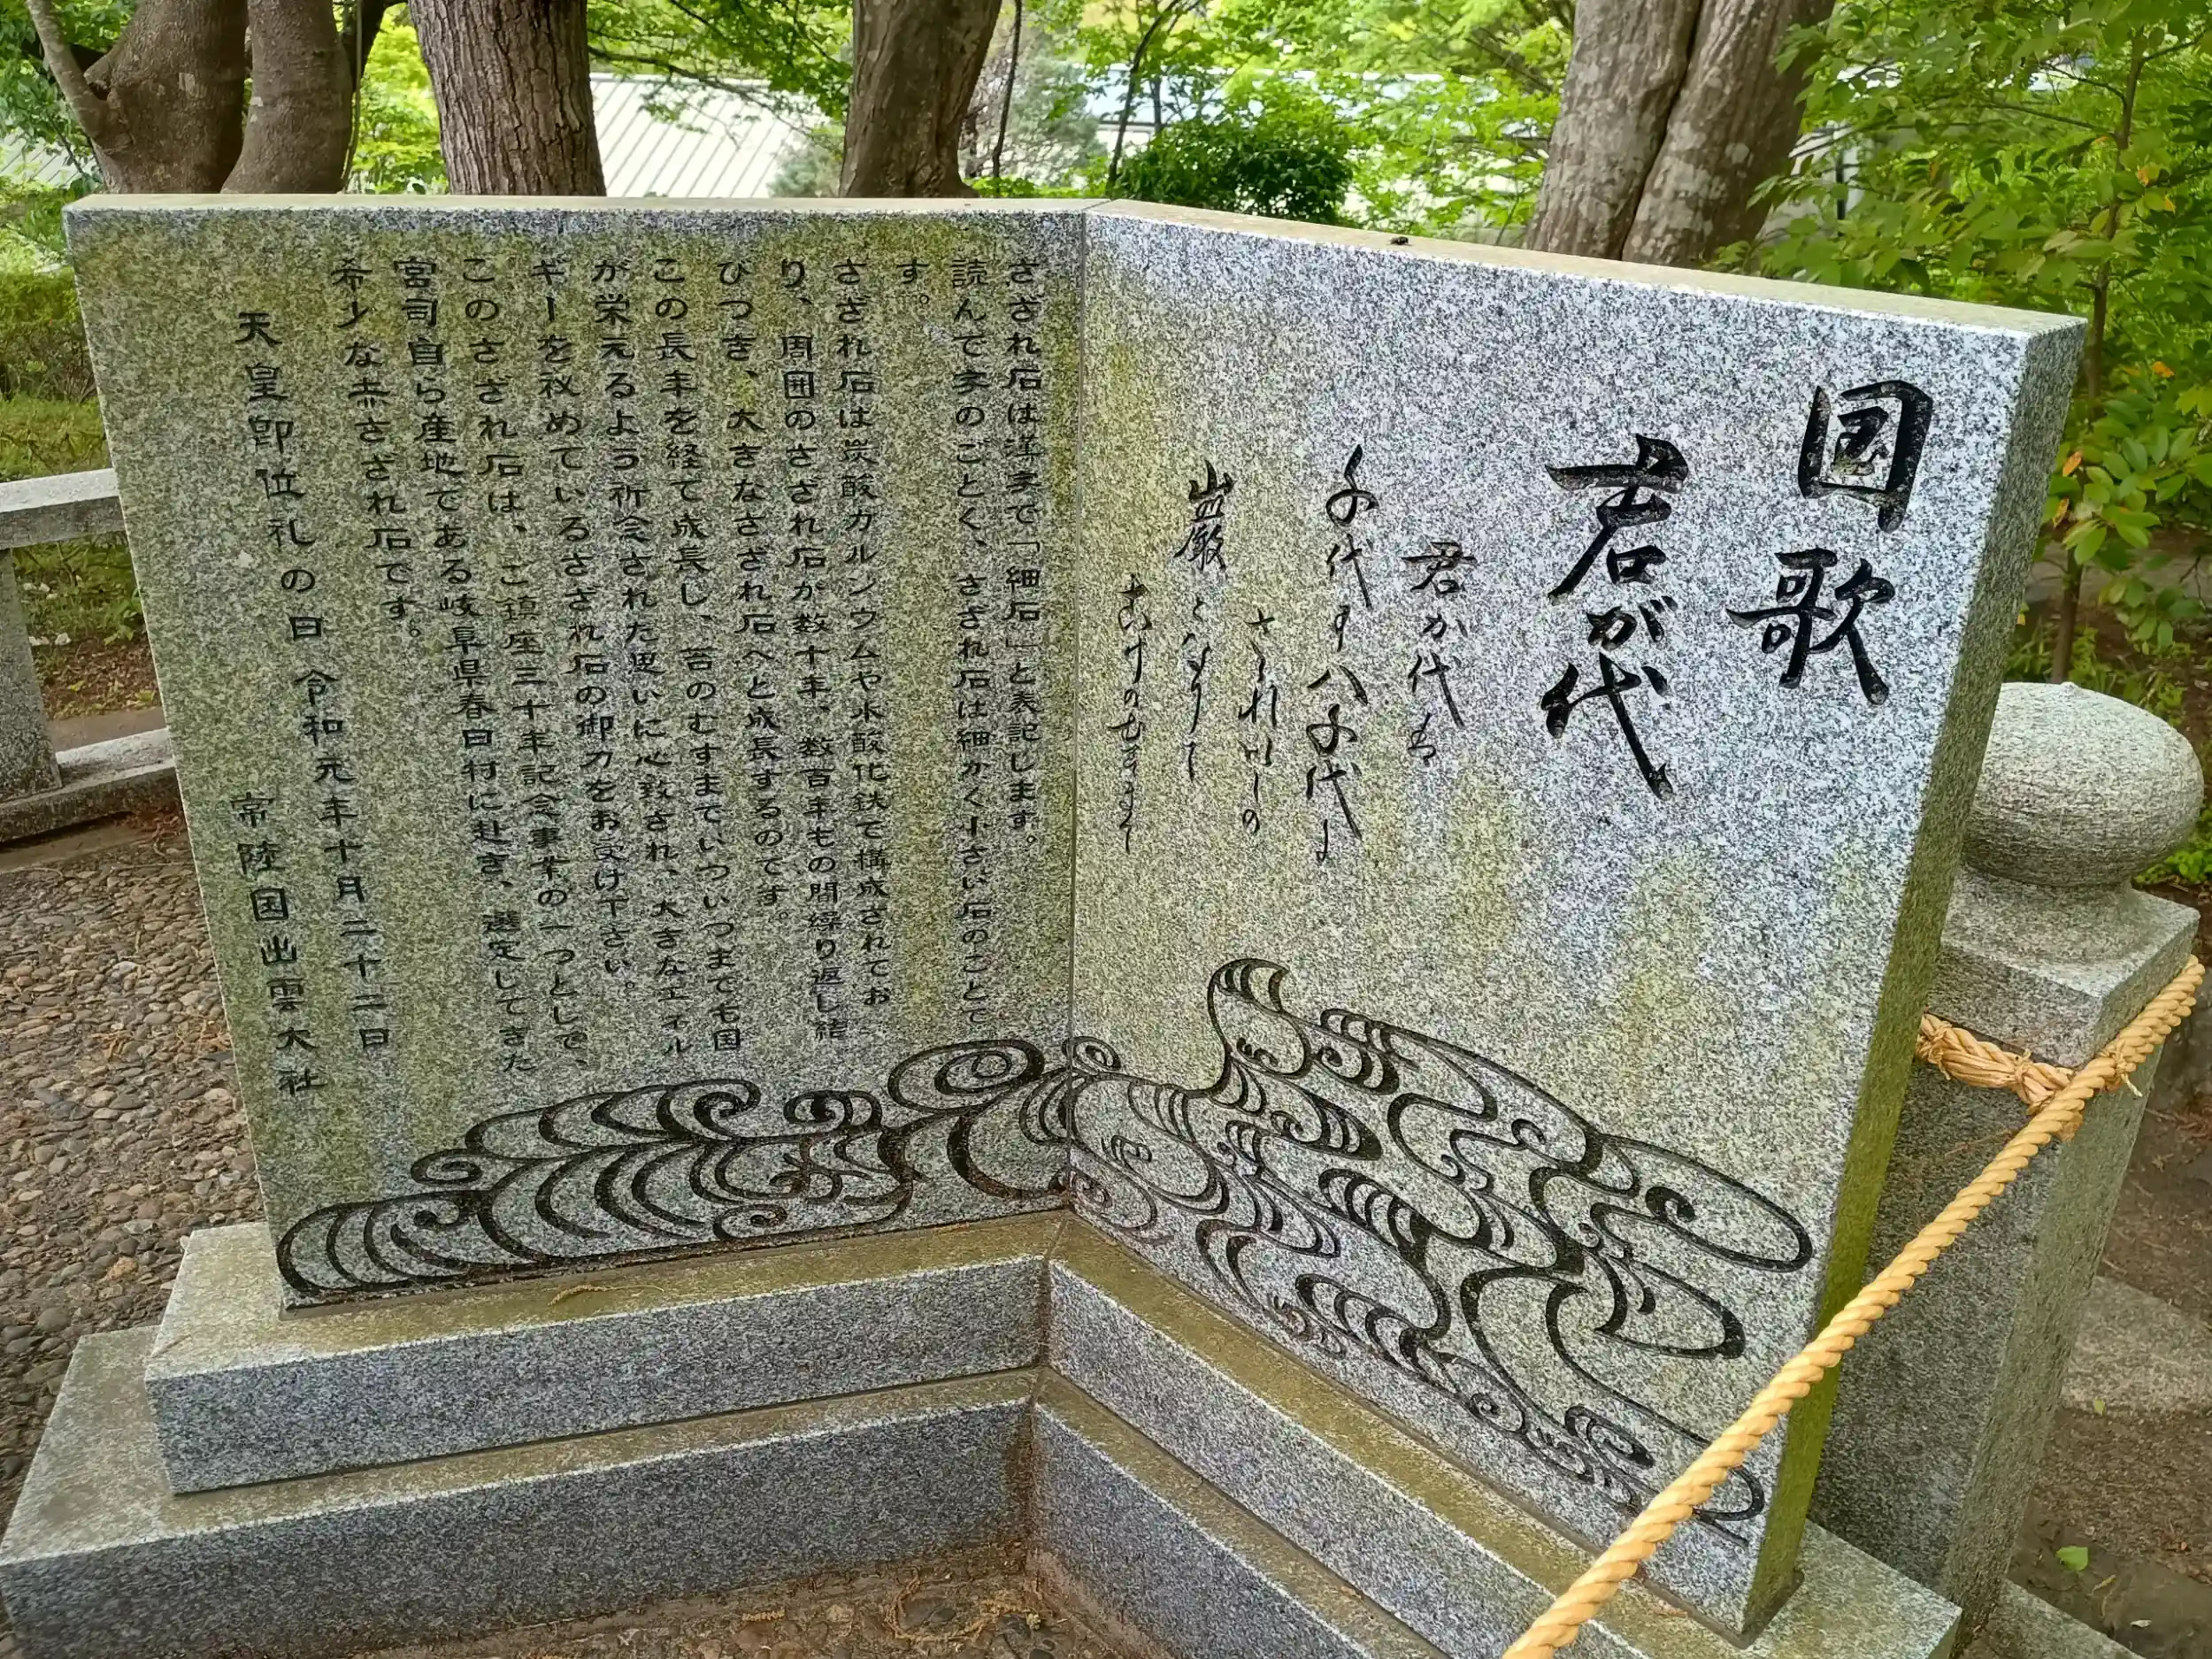 国歌
君が代
君か代は
千代に八千代に
さゝれいしの
巌となりて
こけのむすまて
さざれ石は漢字で「細石」と表記します。
読んで字のごとく、さざれ石は細かく小さい石のことで
す。
さざれ石は炭酸カルシウムや水酸化鉄で構成されてお
り、周囲のさざれ石が数十年、数百年もの間繰り返し結
びつき、大きなさざれ石へと成長するのです。
この長年を経て成長し、苔のむすまでいついつまでも国
が栄えるよう祈念された思いに心致され、大きなエネル
ギーを秘めているさざれ石の御力をお受け下さい。
このさざれ石は、ご鎮座三十年記念事業の一つとして、
宮司自ら産地である岐阜県春日村に赴き、選定してきた
希少な赤さざれ石です。
天皇即位礼の日 令和元年十月二十二日
常陸国出雲大社